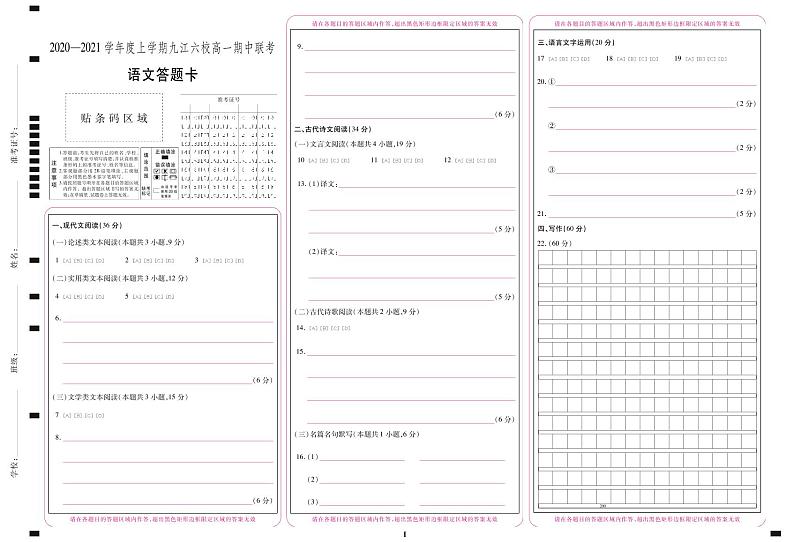 2020—2021 学年度上学期九江六校高一期中联考
语文答题卡
贴条码区域
准考证号
注意事项
填涂范例
正确填涂
错误填涂
缺考标记
准考证号:
姓名:
班级:
学校:
请在各题目的答题区域内作答,超出黑色矩形边框限定区域的答案无效
一、现代文阅读(36 分)
(一)论述类文本阅读(本题共 3 小题,9 分)
1 [A] [B] [C] [D] 2 [A] [B] [C] [D] 3 [A] [B] [C] [D]
(二)实用类文本阅读(本题共 3 小题,12 分)
4 [A] [B] [C] [D] 5 [A] [B] [C] [D]
6.
(6 分)
(三)文学类文本阅读(本题共 3 小题,15 分)
7 [A] [B] [C] [D]
8.
(6 分)
请在各题目的答题区域内作答,超出黑色矩形边框限定区域的答案无效
请在各题目的答题区域内作答,超出黑色矩形边框限定区域的答案无效
9.
(6 分)
二、古代诗文阅读(34 分)
(一)文言文阅读(本题共 4 小题,19 分)
10 [A] [B] [C] [D] 11 [A] [B] [C] [D] 12 [A] [B] [C] [D]
13. (1)译文:
(5 分)
(2)译文:
(5 分)
(二)古代诗歌阅读(本题共 2 小题,9 分)
14. [A] [B] [C] [D]
15.
(6 分)
(三)名篇名句默写(本题共 1 小题,6 分)
16. (1)
(2)
(3)
请在各题目的答题区域内作答,超出黑色矩形边框限定区域的答案无效
三、语言文字运用(20 分)
17 [A] [B] [C] [D] 18 [A] [B] [C] [D] 19 [A] [B] [C] [D]
20. ①
(2 分)
②
(2 分)
③
(2 分)
21.
(5 分)
四、写作(60 分)
22. (60 分)
200
请在各题目的答题区域内作答,超出黑色矩形边框限定区域的答案无效
1